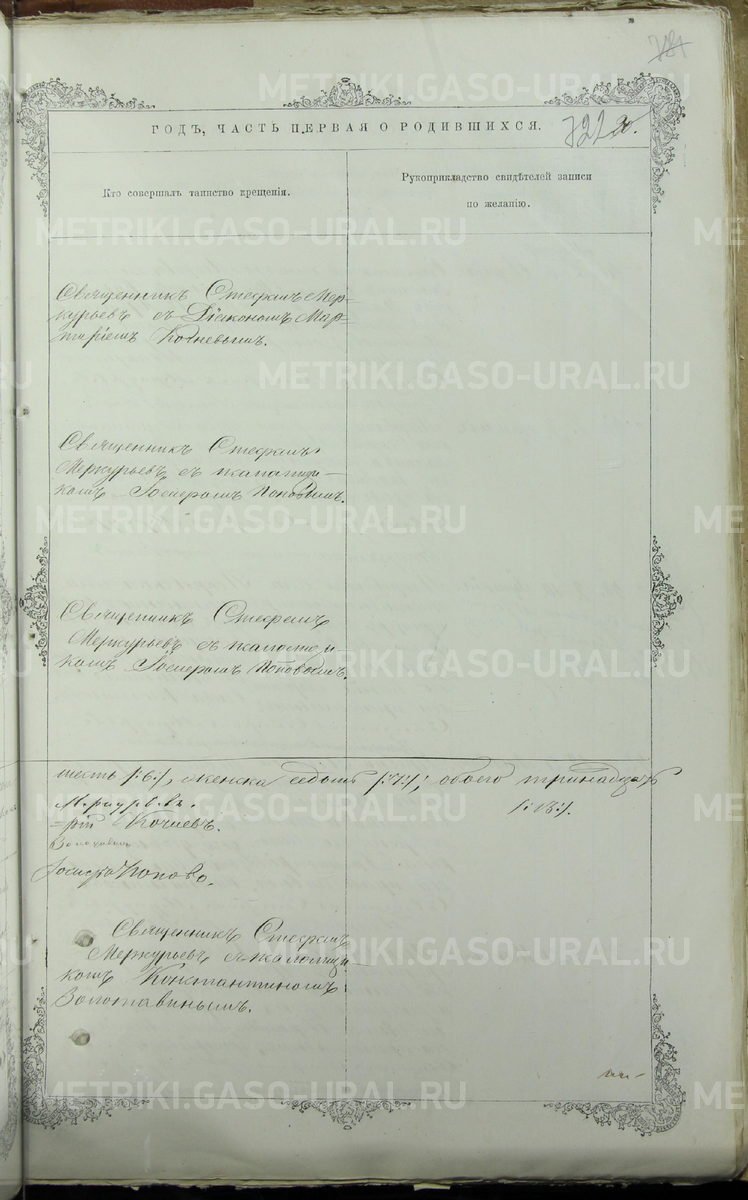 781
ГОДЪ, ЧАСТЬ ПЕРВАЯ О РОДИВШИХСЯ.
721
Кто совершалъ таинство крещенія.
Рукоприкладство свидѣтелей записи
по желанію.
Священникъ Стефанъ Мер-
курьевъ съ Діакономъ Мар-
Священникъ Стефанъ
Меркурьевъ съ псаломщи-
комъ Іосифомъ Поповымъ.
Священникъ Стефанъ
Меркурьевъ съ псаломщи-
комъ Іосифомъ Поповымъ.
шесть /:6:/, женска седмь /:7:/; обоего тринадцать
/:13:/.
Меркурьевъ.
Іосифъ Поповъ.
Священникъ Стефанъ
Меркурьевъ съ псаломщи-
комъ Константиномъ
Золотавинымъ.
METRIKI.GASO-URAL.RU